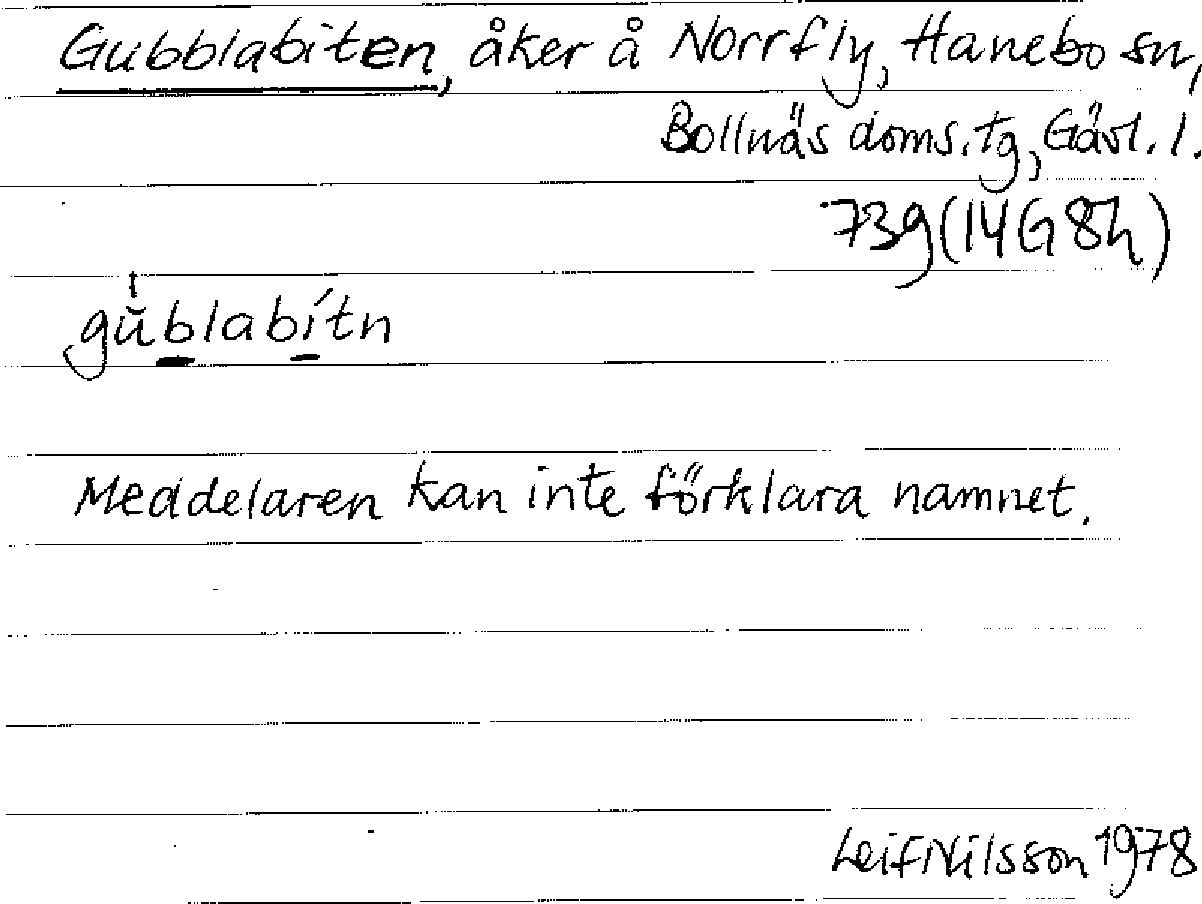 Gubblabiten, åker å Norrfly, Hanebo sn,
Bollnäs doms.tg, Gävl. l.
73g (14G 8h)
gu̍blabítn
Meddelaren kan inte förklara namnet.
Leif Nilsson 1978